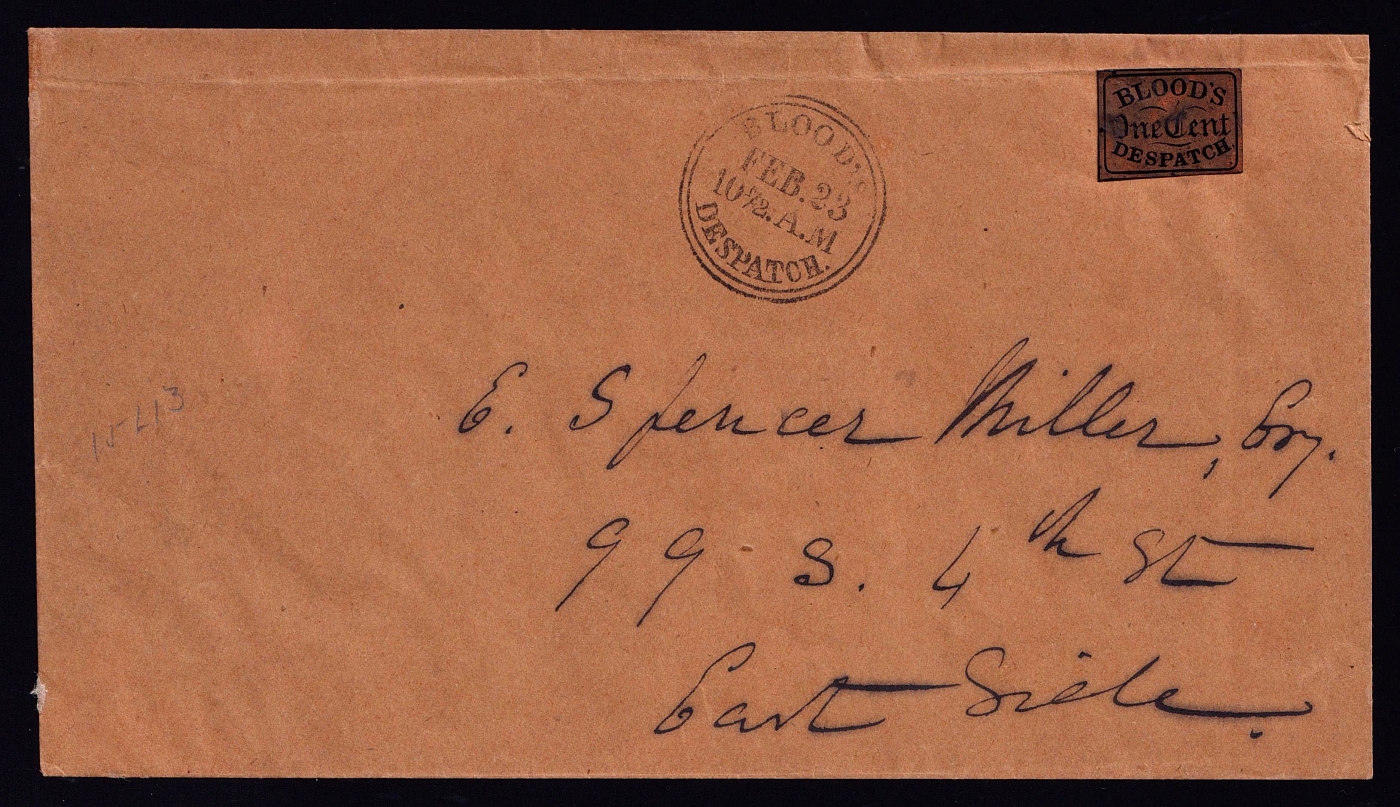 BLOOD'S
One Cent
DESPATCH
BLOOD'S
FEB. 23
10 1/2. A.M
DESPATCH.
E. Spencer Miller, Esq.
99 S. 4th St
East Side.